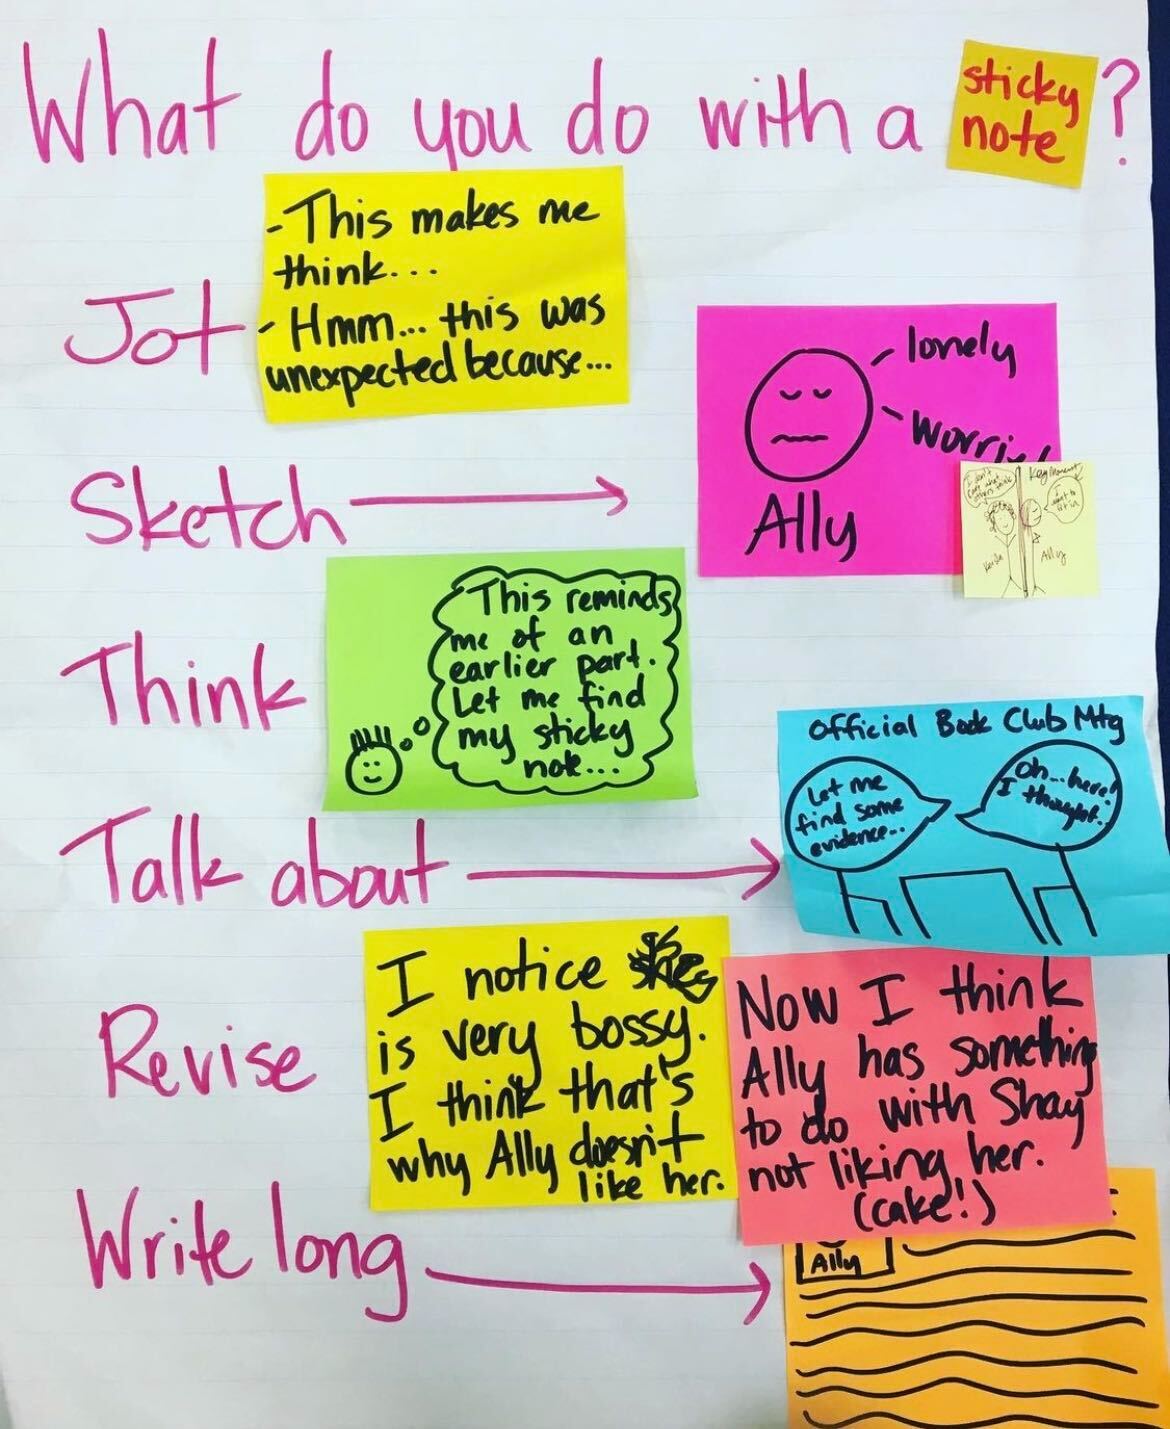 What do you do with a sticky
note ?
Jot
- This makes me
think...
- Hmm... this was
unexpected because...
Sketch
lonely
Ally
I don't
care what
others think
Key Moment
I want to
fit in
Keisha
Ally
Think
This reminds
me of an
earlier part.
Let me find
my sticky
note...
Talk about
Official Book Club Mtg
Let me
find some
evidence...
Oh...here!
I thought..
Revise
I notice
is very bossy.
I think that's
why Ally doesn't
like her.
Now I think
Ally has something
to do with Shay
not liking her.
(cake!)
Write long
Ally